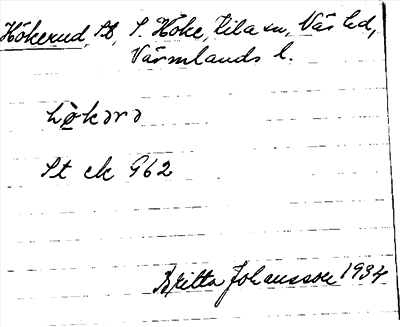 Hökerud, St, S. Höke, Kila sn, Näs hd,
Värmlands l.
hø̀kərə
St ek 962
Britta Johansson 1934